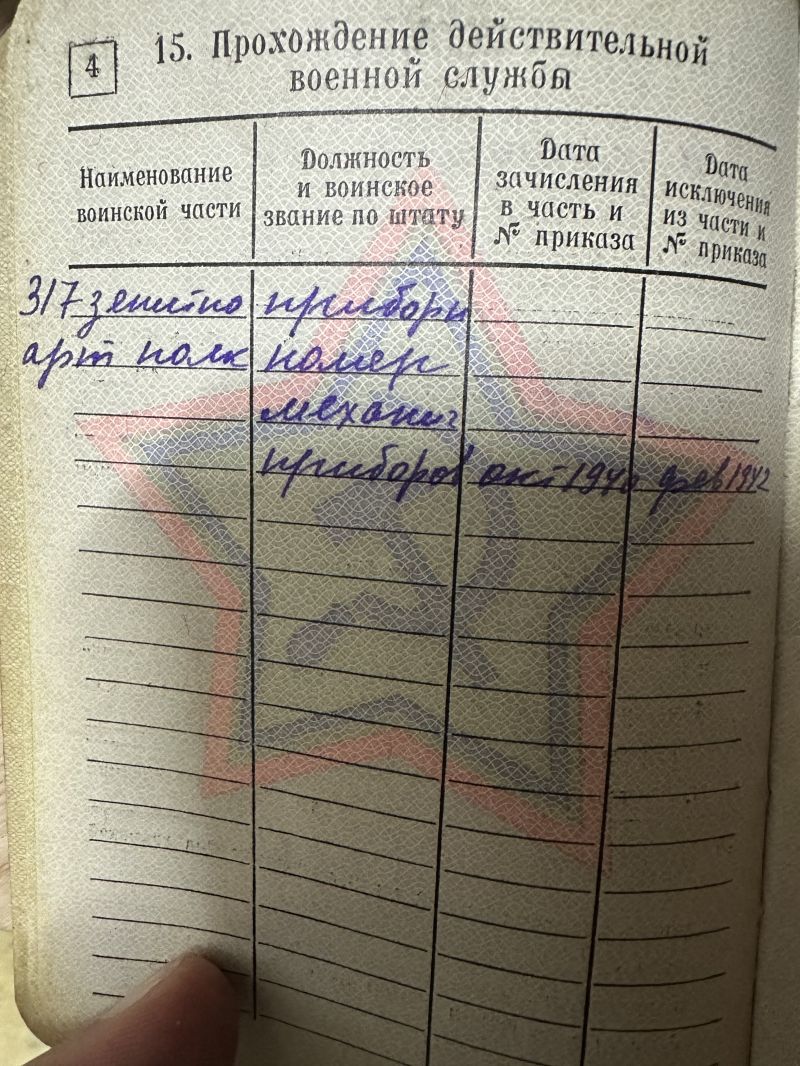 4
15. Прохождение действительной
военной службы
Наименование
воинской части
Должность
и воинское
звание по штату
Дата
зачисления
в часть и
№ приказа
Дата
исключения
из части и
№ приказа
317 зенитно приборн
арт полк номер
механик
приборов окт 1940 фев 1942